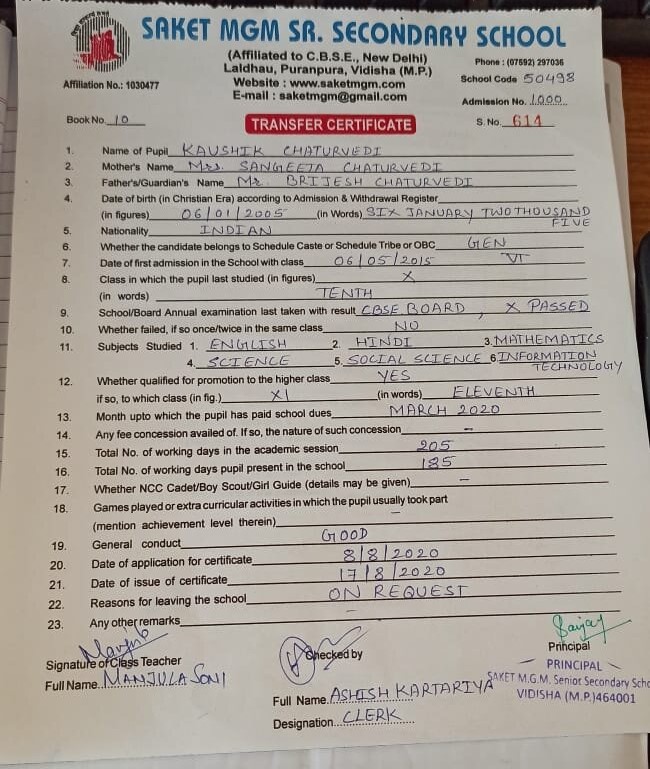 SAKET MGM SR. SECONDARY SCHOOL
(Affiliated to C.B.S.E., New Delhi)
Laldhau, Puranpura, Vidisha (M.P.)
Website : www.saketmgm.com
E-mail : saketmgm@gmail.com
Affiliation No.: 1030477
Phone : (07592) 297036
School Code 50498
Admission No. 1000
Book No. 10
TRANSFER CERTIFICATE
S. No. 614
1. Name of Pupil KAUSHIK CHATURVEDI
2. Mother's Name Mrs. SANGEETA CHATURVEDI
3. Father's/Guardian's Name Mr. BRIJESH CHATURVEDI
4. Date of birth (in Christian Era) according to Admission & Withdrawal Register
(in figures) 06/01/2005 (in Words) SIX JANUARY TWO THOUSAND FIVE
5. Nationality INDIAN
6. Whether the candidate belongs to Schedule Caste or Schedule Tribe or OBC GEN
7. Date of first admission in the School with class 06/05/2015 VI
8. Class in which the pupil last studied (in figures) X
(in words) TENTH
9. School/Board Annual examination last taken with result CBSE BOARD, X PASSED
10. Whether failed, if so once/twice in the same class NO
11. Subjects Studied 1. ENGLISH 2. HINDI 3. MATHEMATICS
4. SCIENCE 5. SOCIAL SCIENCE 6 INFORMATION TECHNOLOGY
12. Whether qualified for promotion to the higher class YES
if so, to which class (in fig.) XI (in words) ELEVENTH
13. Month upto which the pupil has paid school dues MARCH 2020
14. Any fee concession availed of. If so, the nature of such concession –
15. Total No. of working days in the academic session 205
16. Total No. of working days pupil present in the school 185
17. Whether NCC Cadet/Boy Scout/Girl Guide (details may be given) –
18. Games played or extra curricular activities in which the pupil usually took part
(mention achievement level therein) –
19. General conduct GOOD
20. Date of application for certificate 8/8/2020
21. Date of issue of certificate 17/8/2020
22. Reasons for leaving the school ON REQUEST
23. Any other remarks –
Signature of Class Teacher
Full Name. MANJULA SONI
Checked by
Full Name. ASHISH KARTARIYA
Designation. CLERK
Sanjay
Principal
PRINCIPAL
SAKET M.G.M. Senior Secondary Scho
VIDISHA (M.P.)464001